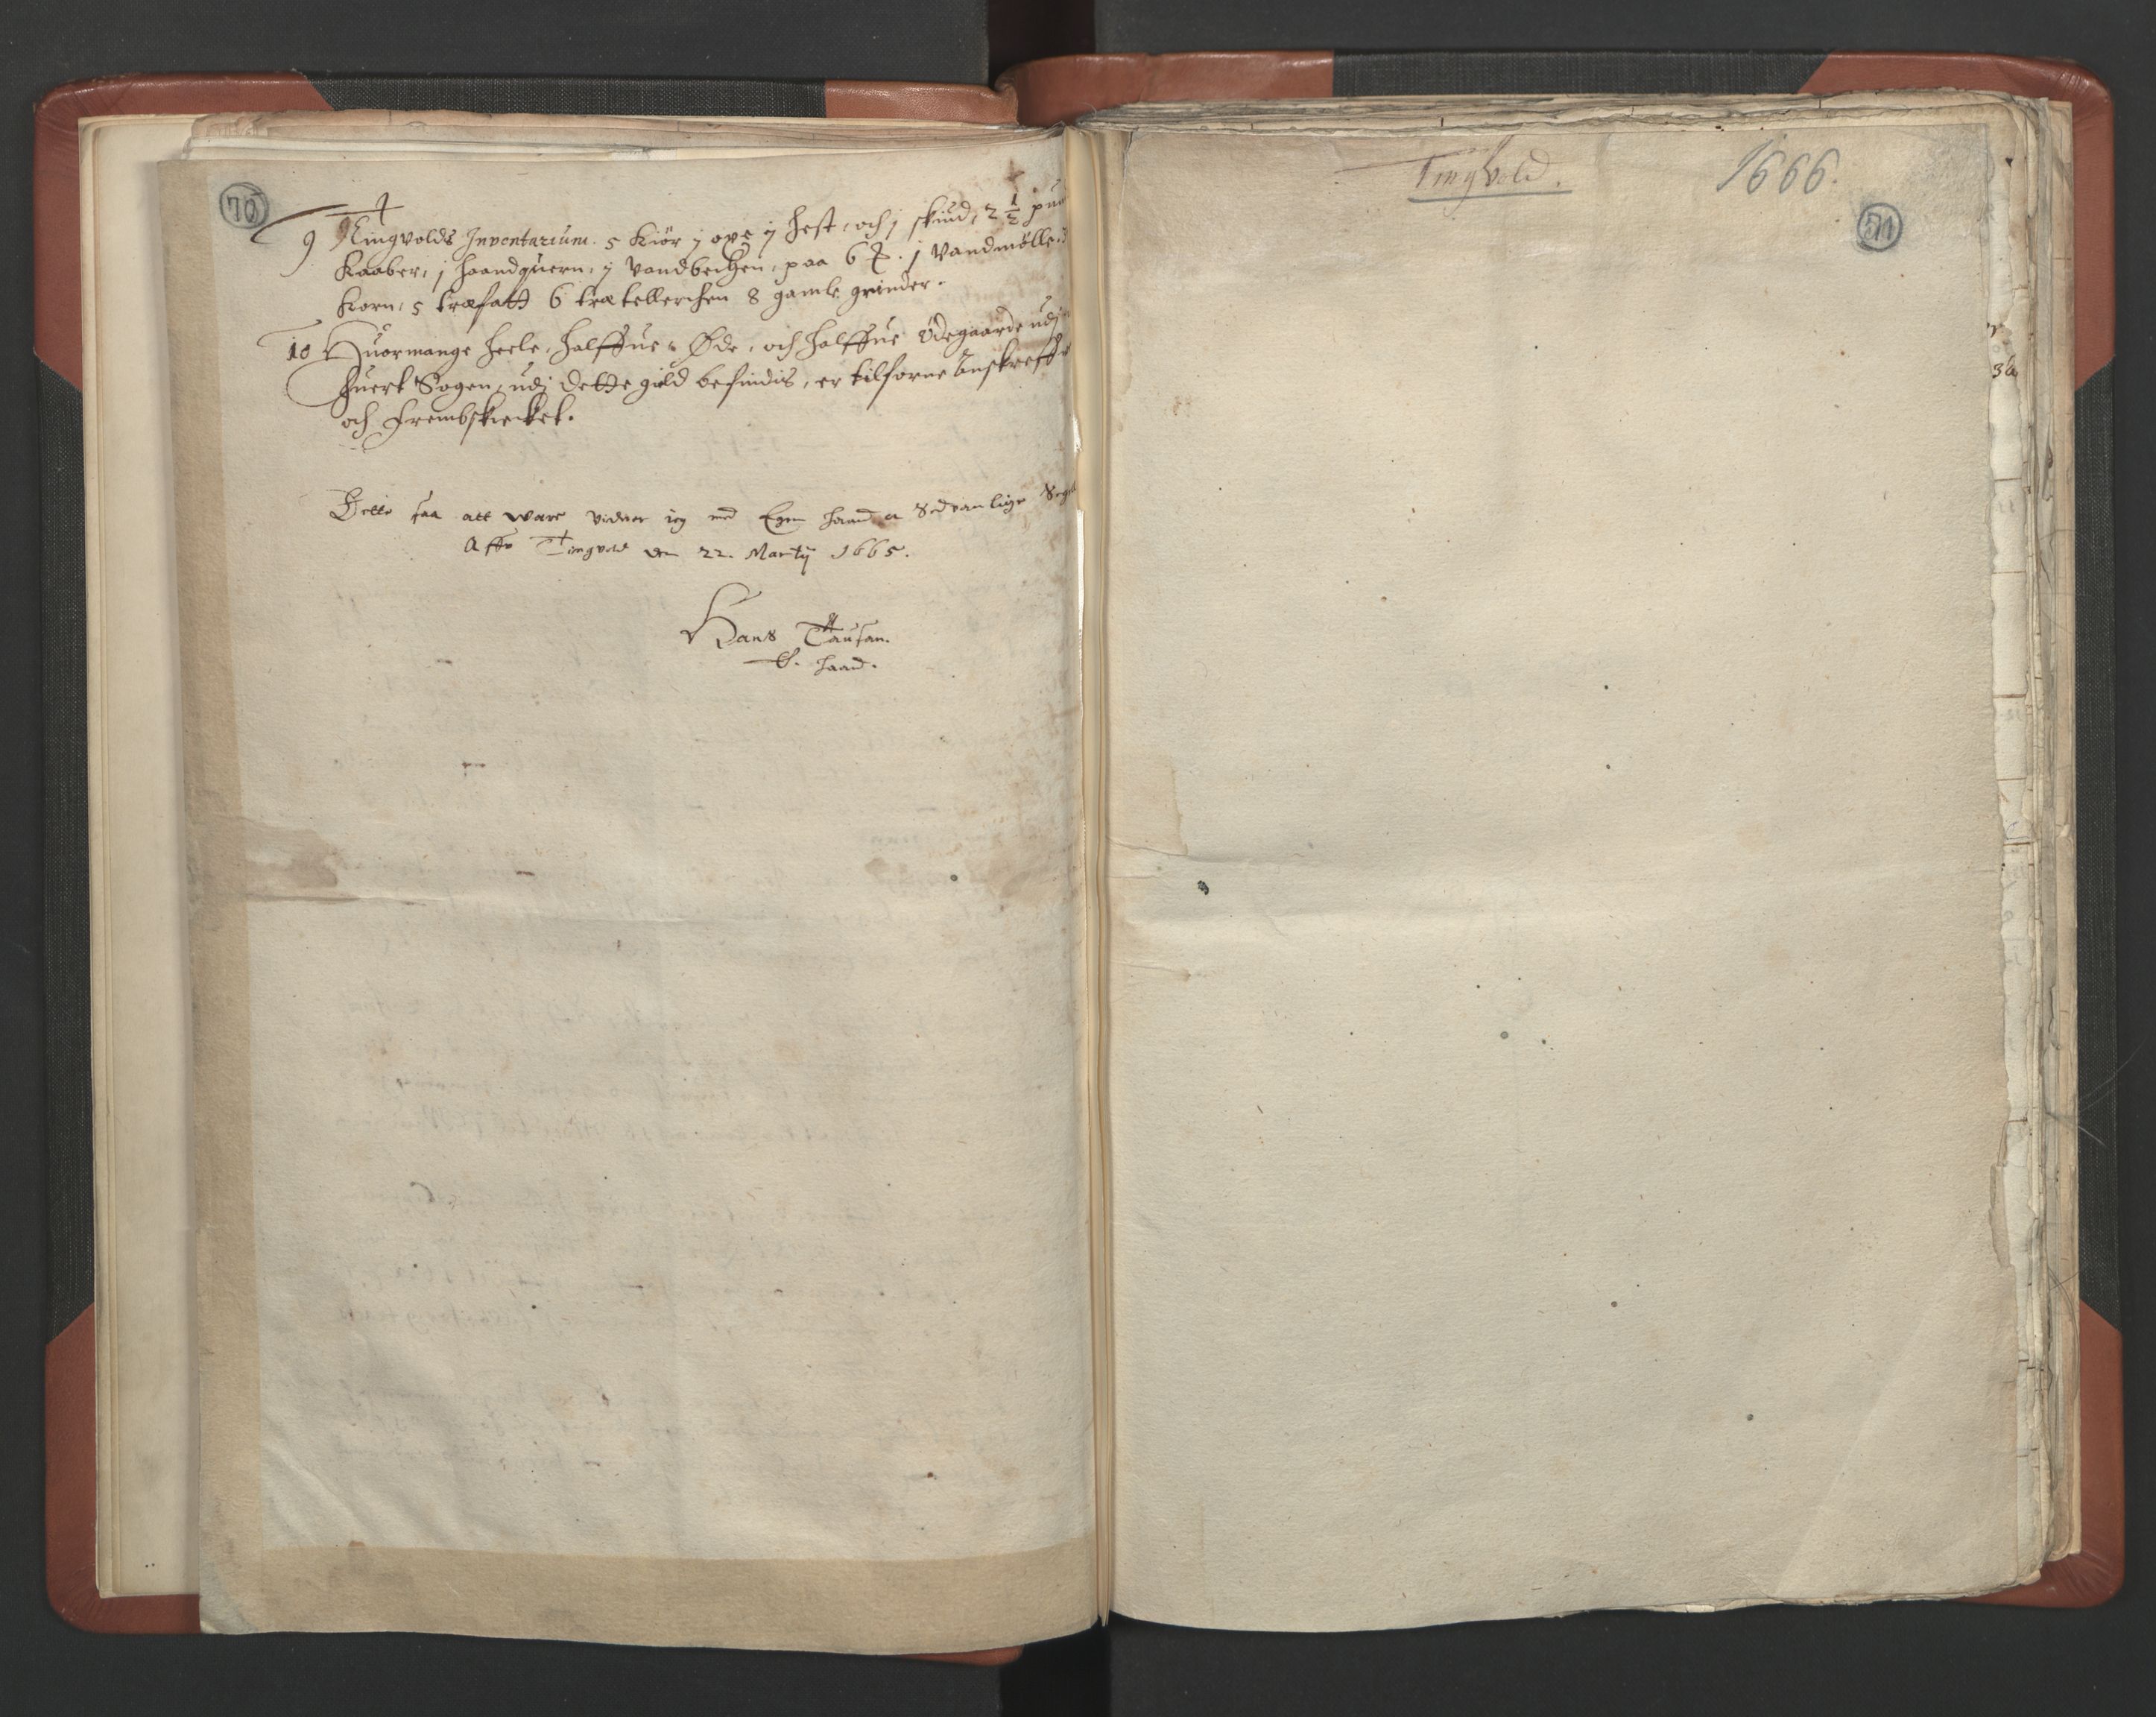 70
9 Tingvolds Inventarium. 5 Kiør j oxe ij hest, och j skind, 2 1/2 pu
Kaaber, j Haandquern, ij Vandbechen, paa 6 j Vandmølle
Korn, 5 træfatt 6 trætellerchen 8 gamle grinder.
10 Huormange heele, halffue, Øde, och halffue Ødegaarde udj
huert Sogen, udj dette gield befindis, er tilforne anskreff
och frembskicket.
Dette saa att ware vidner ieg med Egen haand Sedvanlige
Aff Tingvold den 22. Martij 1665.
Hans Tausan.
E. haand.
Tingvold. 1666.
71